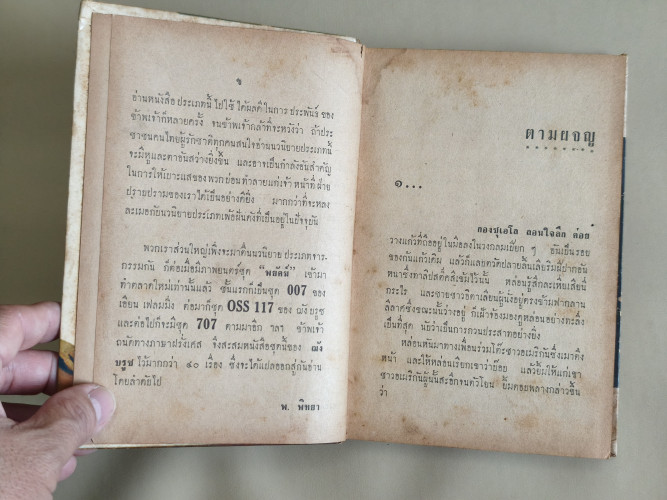 ข
อ่านหนังสือประเภทนี้ไปใช้ ได้ผลดีในการ ประพันธ์ ของ
ข้าพเจ้าก็หลายครั้ง จนข้าพเจ้ากล้าที่จะหวังว่า ถ้าประ
ชาชนคนไทยผู้รักชาติทุกคนสนใจอ่านนวนิยายประเภทนี้
จะมีหูและตาอันสว่างยิ่งขึ้น และอาจเป็นกำลังอันสำคัญ
ในการให้เบาะแสของพวกบ่อนทำลายแก่เจ้า หน้าที่ฝ่าย
ปราบปรามของเราได้เป็นอย่างดียิ่ง มากกว่าที่จะหลง
ละเมอกับนวนิยายประเภทเพ้อฝันดังที่เป็นอยู่ในปัจจุบัน
พวกเราส่วนใหญ่เพิ่งจะมาตื่นนวนิยาย ประเภทจาร-
กรรมกัน ก็ต่อเมื่อมีภาพยนตร์ชุด "พยัคฆ์" เข้ามา
ทำตลาดใหม่ไม่เท่าไรนี้แล้ว ชั้นแรกก็เป็นชุด 007 ของ
เอียน เฟลมมิ่ง ต่อมาก็ชุด OSS 117 ของ ณัง บรูซ
และต่อไปก็จะมีชุด 707 ตามมาอีก ฯลฯ ข้าพเจ้า
ถนัดทางภาษาฝรั่งเศส จึงสะสมหนังสือชุดนี้ของ ณัง
บรูซ ไว้มากกว่า ๔๐ เรื่อง ซึ่งจะได้แปลออกสู่กันอ่าน
โดยลำดับไป
พ. พิทยา
ตามผจญ
๑...
กองซูเอโล ถอนใจลึก ค่อย
วางแก้วที่ถืออยู่ในมือลงในวงกลมเปียก ๆ อันเป็นรอย
ของก้นแก้วเดิม แล้วก็เลยตวัดปลายลิ้นเลียริมฝีปากอัน
หนาซึ่งทาลิปสติคสีเข้มไว้นั้น หล่อนรู้สึกละเหี่ยเสียที่
กระไร และชายชาวอิตาเลียนผู้นั่งอยู่ตรงข้ามฟากลาน
ลีลาศซึ่งขณะนั้นว่างอยู่ ก็เฝ้าจ้องมองดูหล่อนอย่างทะลึ่ง
เป็นที่สุด นับว่าเป็นการกวนประสาทอย่างยิ่ง
หล่อนหันมาทางเพื่อนร่วมโต๊ะชาวอเมริกันซึ่งเมาตึง
หน้า และให้หล่อนเรียกเขาว่าย้อย แล้วยิ้มให้แก่เขา
ชาวอเมริกันผู้นั้นสะอึกจนตัวโยน ยิ้มตอบพลางกล่าวขึ้น
ว่า